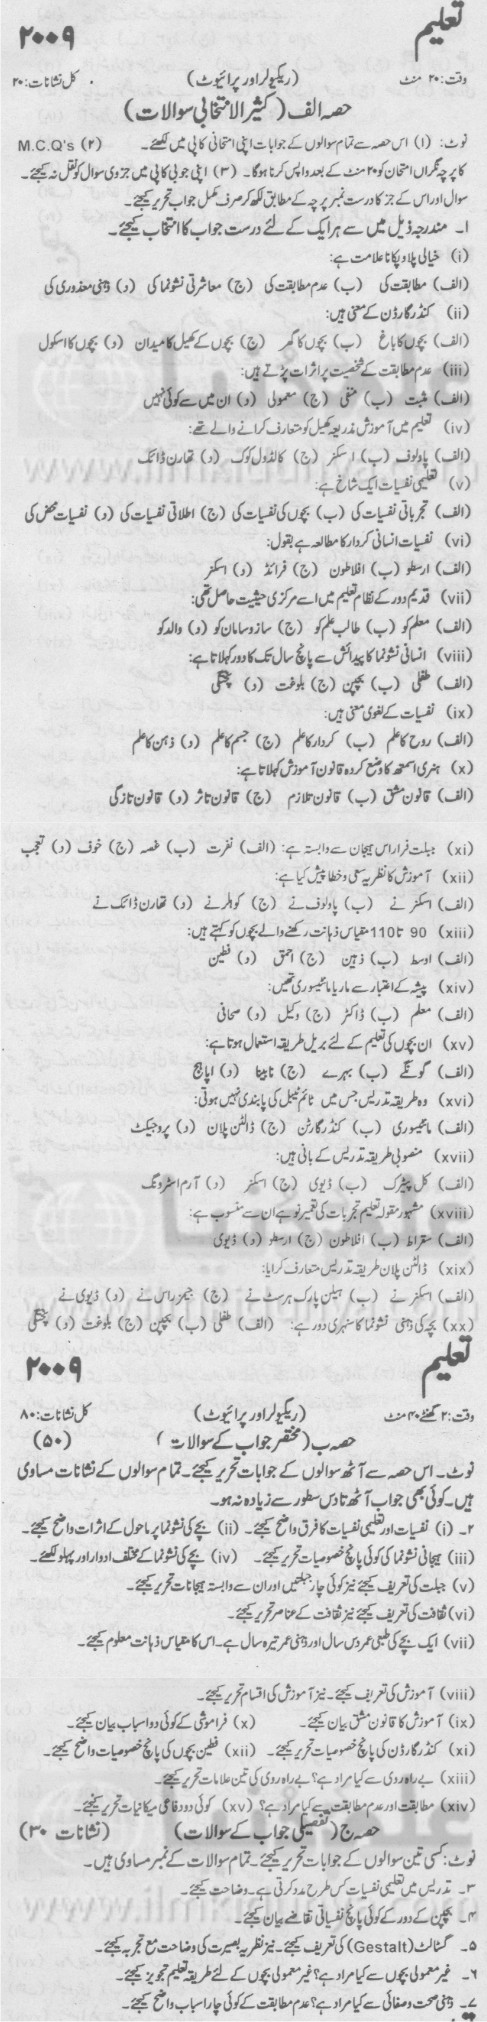 تعلیم
۲۰۰۹
وقت: ۲۰ منٹ (ریگولر اور پرائیوٹ) کل نشانات: ۲۰
حصہ الف (کثیر الانتخابی سوالات)
نوٹ: (۱) اس حصہ سے تمام سوالوں کے جوابات اپنی امتحانی کاپی میں لکھئے۔ (۲) M.C.Q's
کا پرچہ نگراں امتحان کو ۲۰ منٹ کے بعد واپس کرنا ہوگا۔ (۳) اپنی جوابی کاپی میں جزوی سوال کو نقل نہ کیجئے۔
سوال اور اس کے جز کا درست نمبر پرچہ کے مطابق لکھ کر صرف مکمل جواب تحریر کیجئے۔
۱۔ مندرجہ ذیل میں سے ہر ایک کے لئے درست جواب کا انتخاب کیجئے۔
(i) خیالی پلاؤ پکانا علامت ہے:
(الف) مطابقت کی (ب) عدم مطابقت کی (ج) معاشرتی نشوونما کی (د) ذہنی معذوری کی
(ii) کنڈرگارڈن کے معنی ہیں:
(الف) بچوں کا باغ (ب) بچوں کا گھر (ج) بچوں کے کھیل کا میدان (د) بچوں کا اسکول
(iii) عدم مطابقت کے شخصیت پر اثرات پڑتے ہیں:
(الف) مثبت (ب) منفی (ج) معمولی (د) ان میں سے کوئی نہیں
(iv) تعلیم میں آموزش بذریعہ کھیل کو متعارف کرانے والے تھے:
(الف) پاولوف (ب) اسکنر (ج) کالڈول کوک (د) تھارن ڈائک
(v) تعلیمی نفسیات ایک شاخ ہے:
(الف) تجرباتی نفسیات کی (ب) بچوں کی نفسیات کی (ج) اطلاقی نفسیات کی (د) نفسیات محض کی
(vi) نفسیات انسانی کردار کا مطالعہ ہے بقول:
(الف) ارسطو (ب) افلاطون (ج) فرائڈ (د) اسکنر
(vii) قدیم دور کے نظام تعلیم میں اسے مرکزی حیثیت حاصل تھی:
(الف) معلم کو (ب) طالب علم کو (ج) ساز و سامان کو (د) والد کو
(viii) انسانی نشوونما کا پیدائش سے پانچ سال تک کا دور کہلاتا ہے:
(الف) طفلی (ب) بچپن (ج) بلوغت (د) پختگی
(ix) نفسیات کے لغوی معنی ہیں:
(الف) روح کا علم (ب) کردار کا علم (ج) جسم کا علم (د) ذہن کا علم
(x) ہنری اسمتھ کا وضع کردہ قانون آموزش کہلاتا ہے:
(الف) قانون مشق (ب) قانون تلازم (ج) قانون تاثر (د) قانون تازگی
(xi) جبلت فرار اس ہیجان سے وابستہ ہے: (الف) نفرت (ب) غصہ (ج) خوف (د) تعجب
(xii) آموزش کا نظریہ سعی و خطا پیش کیا ہے:
(الف) اسکنر نے (ب) پاولوف نے (ج) کوہلر نے (د) تھارن ڈائک نے
(xiii) 90 تا 110 مقیاس ذہانت رکھنے والے بچوں کو کہتے ہیں:
(الف) اوسط (ب) ذہین (ج) احمق (د) فطین
(xiv) پیشہ کے اعتبار سے ماریا مانٹیسوری تھیں:
(الف) معلم (ب) ڈاکٹر (ج) وکیل (د) صحافی
(xv) ان بچوں کی تعلیم کے لئے بریل طریقہ استعمال ہوتا ہے:
(الف) گونگے (ب) بہرے (ج) نابینا (د) اپاہج
(xvi) وہ طریقہ تدریس جس میں ٹائم ٹیبل کی پابندی نہیں ہوتی:
(الف) مانٹیسوری (ب) کنڈرگارٹن (ج) ڈالٹن پلان (د) پروجیکٹ
(xvii) منصوبی طریقہ تدریس کے بانی ہیں:
(الف) کل پیٹرک (ب) ڈیوی (ج) اسکنر (د) آرم اسٹرونگ
(xviii) مشہور مقولہ تعلیم تجربات کی تعمیر نو ہے ان سے منسوب ہے:
(الف) سقراط (ب) افلاطون (ج) ارسطو (د) ڈیوی
(xix) ڈالٹن پلان طریقہ تدریس متعارف کرایا:
(الف) اسکنر نے (ب) ہیلن پارک ہرسٹ نے (ج) جیمز راس نے (د) ڈیوی نے
(xx) بچہ کی ذہنی نشوونما کا سنہری دور ہے: (الف) طفلی (ب) بچپن (ج) بلوغت (د) پختگی
تعلیم
۲۰۰۹
وقت: ۲ گھنٹے ۴۰ منٹ (ریگولر اور پرائیوٹ) کل نشانات: ۸۰
حصہ ب (مختصر جواب کے سوالات) (۵۰)
نوٹ۔ اس حصہ سے آٹھ سوالوں کے جوابات تحریر کیجئے۔ تمام سوالوں کے نشانات مساوی
ہیں۔ کوئی بھی جواب آٹھ تا دس سطور سے زیادہ نہ ہو۔
۲۔ (i) نفسیات اور تعلیمی نفسیات کا فرق واضح کیجئے۔ (ii) بچے کی نشوونما پر ماحول کے اثرات واضح کیجئے۔
(iii) ہیجانی نشوونما کی کوئی پانچ خصوصیات تحریر کیجئے۔ (iv) بچے کی نشوونما کے مختلف ادوار اور پہلو لکھئے۔
(v) جبلت کی تعریف کیجئے نیز کوئی چار جبلتیں اور ان سے وابستہ ہیجانات تحریر کیجئے۔
(vi) ثقافت کی تعریف کیجئے نیز ثقافت کے عناصر تحریر کیجئے۔
(vii) ایک بچے کی طبعی عمر دس سال اور ذہنی عمر تیرہ سال ہے۔ اس کا مقیاس ذہانت معلوم کیجئے۔
(viii) آموزش کی تعریف کیجئے۔ نیز آموزش کی اقسام تحریر کیجئے۔
(ix) آموزش کا قانون مشق بیان کیجئے۔ (x) فراموشی کے کوئی دو اسباب بیان کیجئے۔
(xi) کنڈرگارڈن کی پانچ خصوصیات تحریر کیجئے۔ (xii) فطین بچوں کی پانچ خصوصیات واضح کیجئے۔
(xiii) بے راہ روی سے کیا مراد ہے؟ بے راہ روی کی تین علامات تحریر کیجئے۔
(xiv) مطابقت اور عدم مطابقت سے کیا مراد ہے؟ (xv) کوئی دو دفاعی میکانیات تحریر کیجئے۔
حصہ ج (تفصیلی جواب کے سوالات) (نشانات ۳۰)
نوٹ: کسی تین سوالوں کے جوابات تحریر کیجئے۔ تمام سوالات کے نمبر مساوی ہیں۔
۳۔ تدریس میں تعلیمی نفسیات کس طرح مدد کرتی ہے۔ وضاحت کیجئے۔
۴۔ بچپن کے دور کے کوئی پانچ نفسیاتی تقاضے بیان کیجئے۔
۵۔ گسٹالٹ (Gestalt) کی تعریف کیجئے۔ نیز نظریہ بصیرت کی وضاحت مع تجربہ کیجئے۔
۶۔ غیر معمولی بچوں سے کیا مراد ہے؟ غیر معمولی بچوں کے لئے طریقہ تعلیم تجویز کیجئے۔
۷۔ ذہنی صحت و صفائی سے کیا مراد ہے؟ عدم مطابقت کے کوئی چار اسباب واضح کیجئے۔